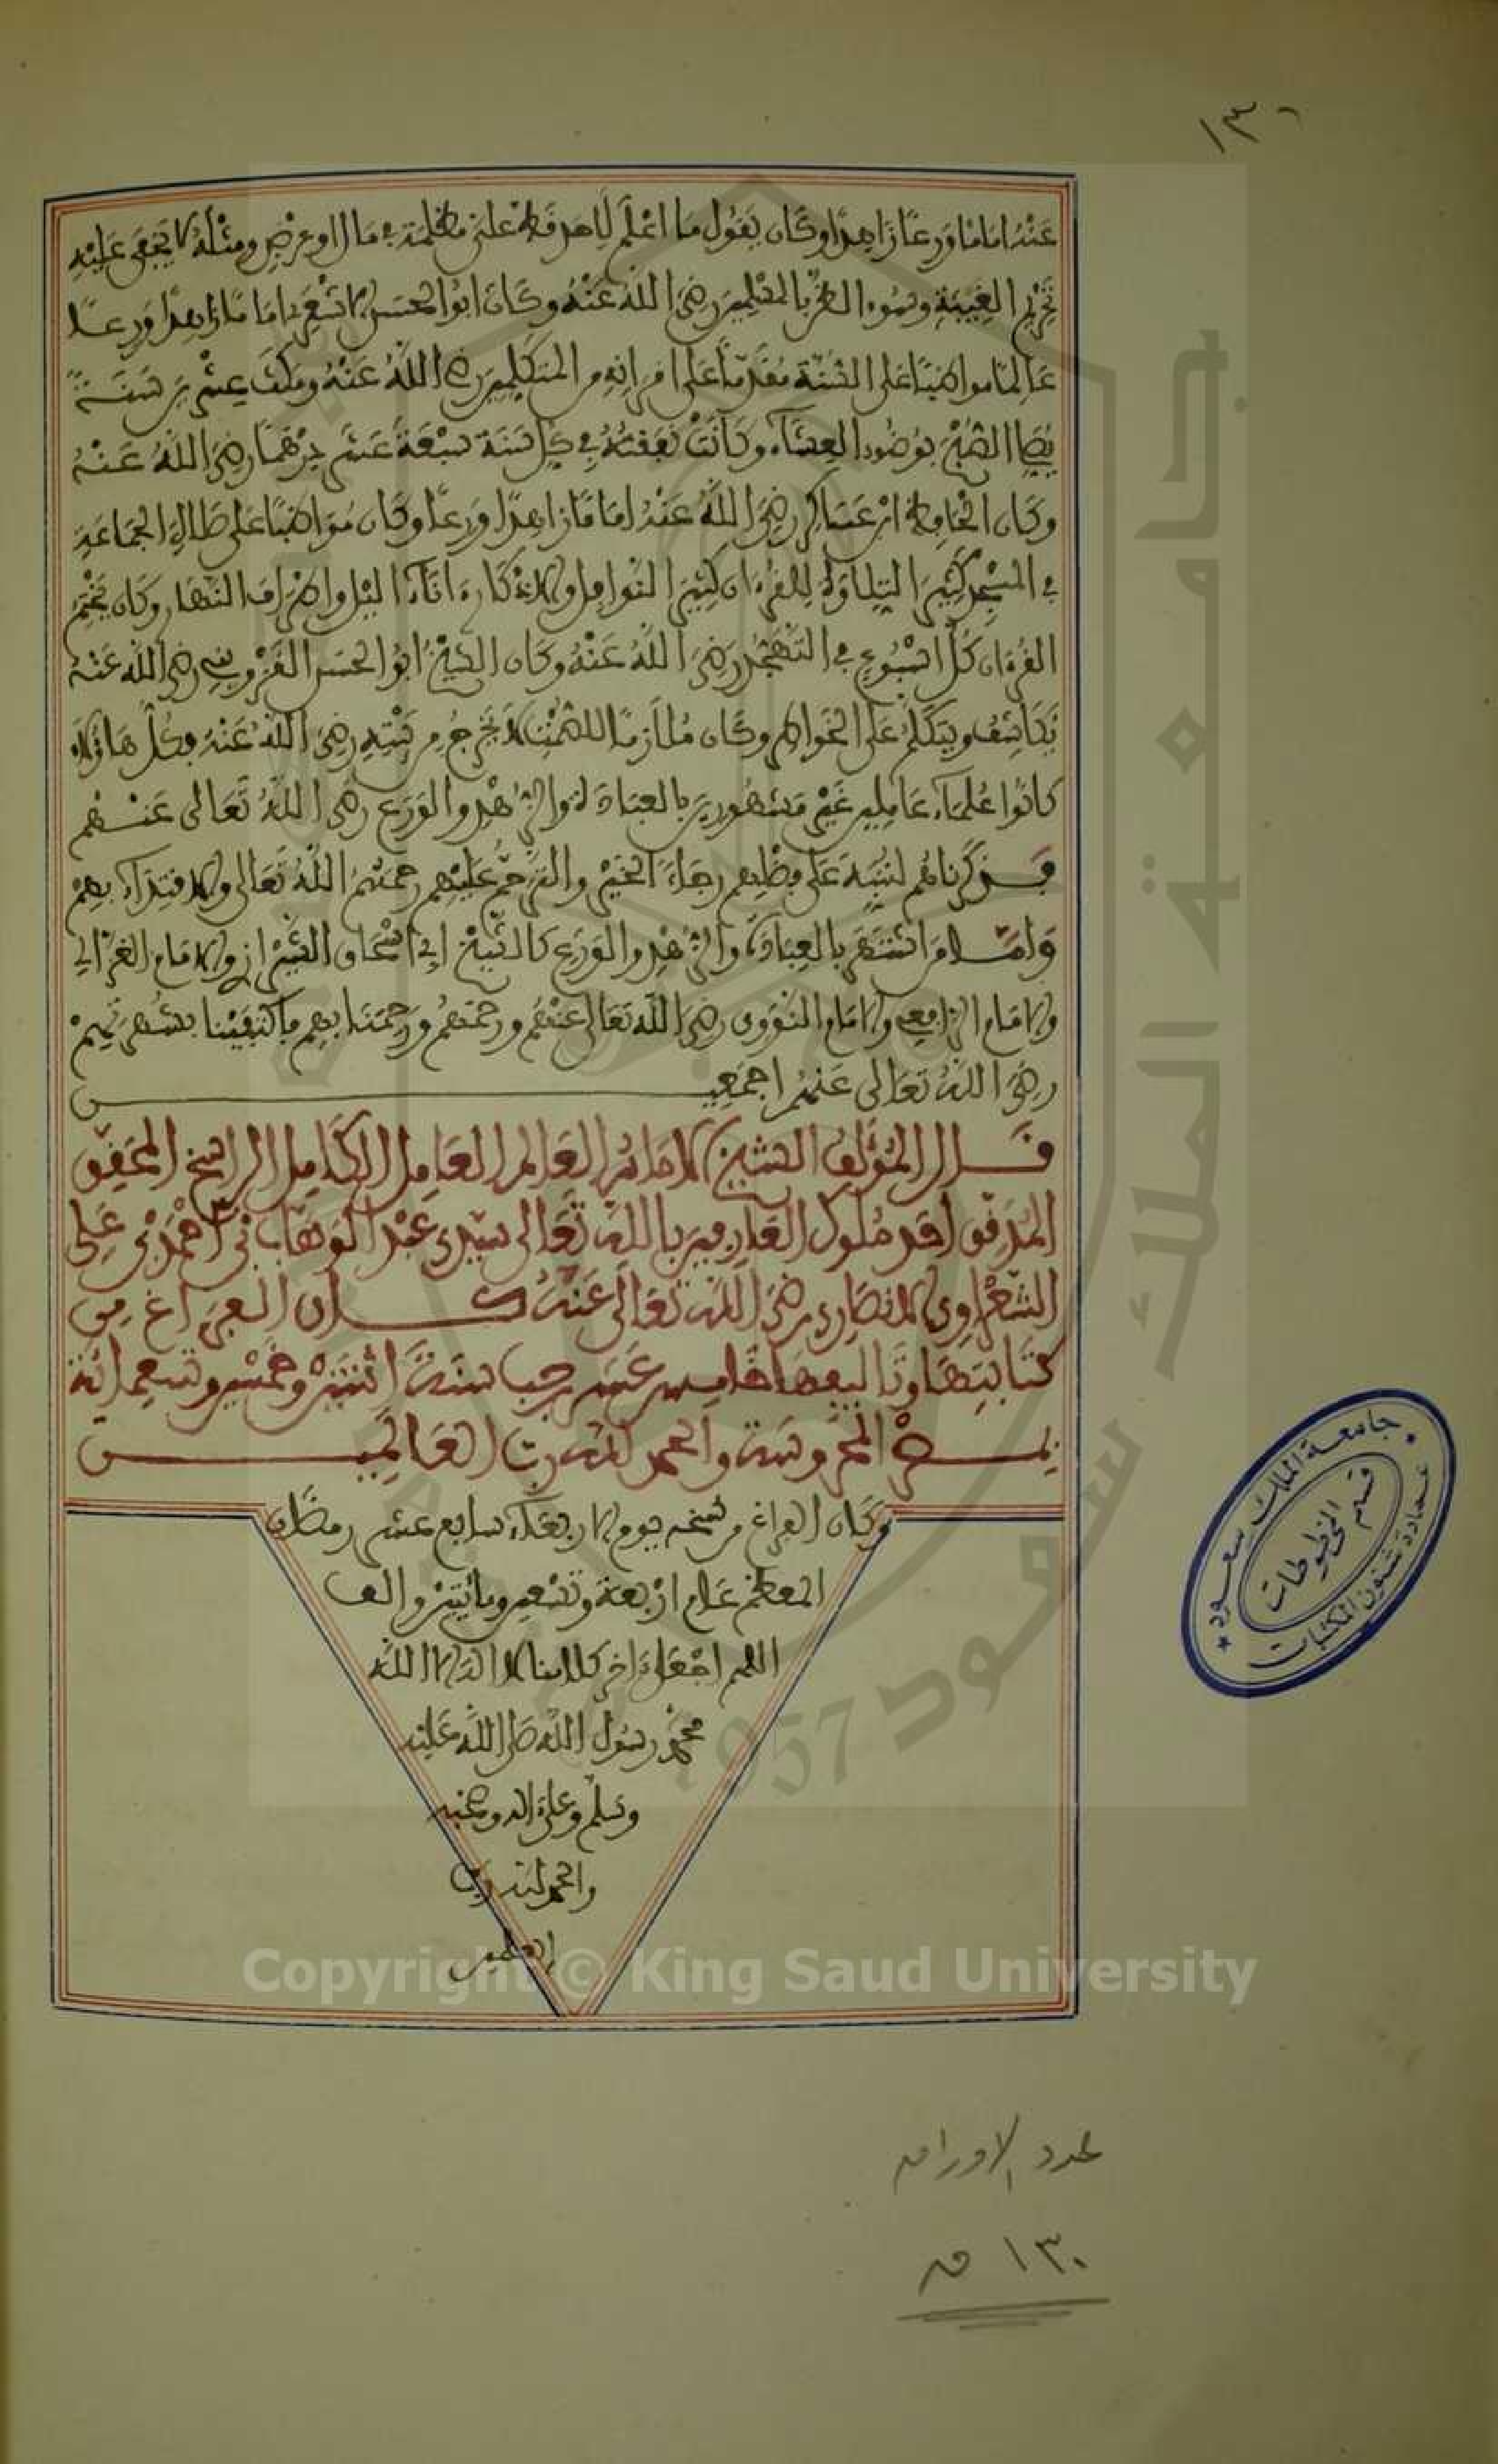 ١٣٠
عَنْهُ اماما ورعًا زاهدًا وكان يقول ما أعلم لأحد قط علىّ مظلمة في مال او عرض ومثله لا يخفى عليه
تحريم الغيبة وسوء الظن بالمسلمين رضي الله عنه وكان ابو الحسن الاشعري اماما زاهدا ورعا
عالما مواظبا على السنة مقدما على اقرانه من المتكلمين رضي الله عنه ومكث عشرين سنة
يصلي الصبح بوضوء العشاء وكانت نفقته في كل سنة سبعة عشر درهما رضي الله عنه
وكان الحافظ ابن عساكر رضي الله عنه اماما زاهدا ورعا وكان مواظبا على صلاة الجماعة
في المسجد كثير التلاوة للقرءان كثير النوافل والاذكار ءاناء اليل واطراف النهار وكان يختم
القرءان كل اسبوع في التهجد رضي الله عنه وكان الشيخ ابو الحسن القزويني رضي الله عنه
يكاشف ويتكلم على الخواطر وكان ملازما للصمت لا يخرج من بيته رضي الله عنه فكل هاؤلاء
كانوا علماء عاملين غير مشهورين بالعبادة والزهد والورع رضي الله تعالى عنهم
فذكرناهم لننبه على فضلهم رجاء الخير والترحم عليهم رحمهم الله تعالى والاقتداء بهم
وامّا من اشتهر بالعبادة والزهد والورع كالشيخ ابي اسحاق الشيرازي والامام الغزالي
والامام الرافعي والامام النووي رضي الله تعالى عنهم ورحمهم ورحمنا بهم فاكتفينا بشهرتهم
رضي الله تعالى عنهم اجمعين
قال المؤلف الشيخ الامام العالم العامل الكامل الراسخ المحقق
المدقق احد ملوك العارفين بالله تعالى سيدي عبد الوهاب بن احمد بن علي
الشعراوي الانصاري رضي الله تعالى عنه كان الفراغ من
كتابتها وتاليفها خامس عشر رجب سنة اثنين وخمسين وتسعمائة
بمصر المحروسة والحمد لله رب العالمين
وكان الفراغ من نسخه يوم الاربعاء سابع عشر رمضان
المعظم عام اربعة وتسعين ومايتين والف
اللهم اجعل ءاخر كلامنا لا اله الا الله
محمد رسول الله صلى الله عليه
وسلم وعلى ءاله وصحبه
والحمد لله رب
العلمين
عدد الاوراق
١٣٠ ق
جامعة الملك سعود
قسم المخطوطات
عمادة شئون المكتبات
جامعة الملك سعود
1957
Copyright © King Saud University